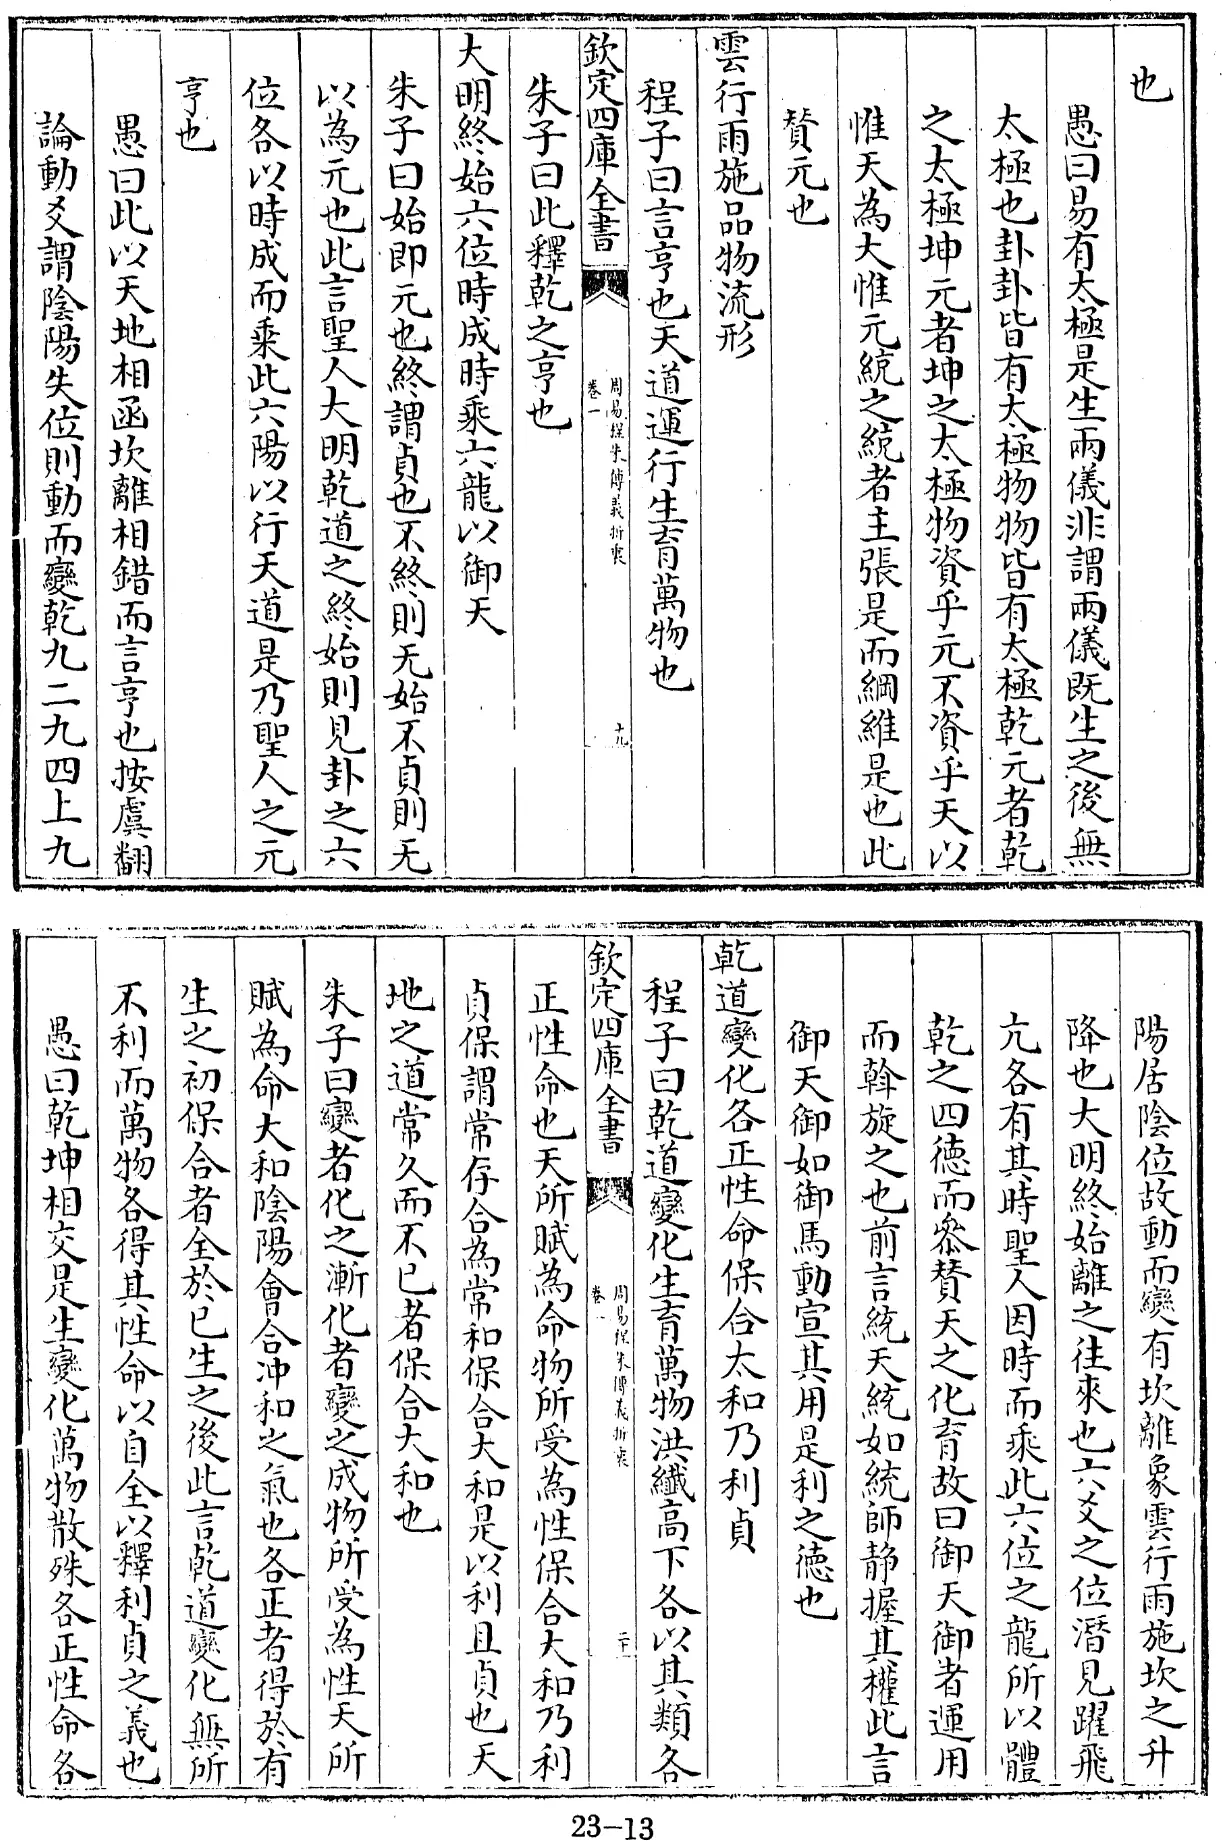 也
愚曰易有太極是生兩儀非謂兩儀既生之後無
太極也卦卦皆有太極物物皆有太極乾元者乾
之太極坤元者坤之太極物資乎元不資乎天以
惟天為大惟元統之統者主張是而綱維是也此
贊元也
雲行雨施品物流形
程子曰言亨也天道運行生育萬物也
欽定四庫全書
周易程朱傳義折衷
卷一
十九
朱子曰此釋乾之亨也
大明終始六位時成時乘六龍以御天
朱子曰始即元也終謂貞也不終則无始不貞則无
以為元也此言聖人大明乾道之終始則見卦之六
位各以時成而乘此六陽以行天道是乃聖人之元
亨也
愚曰此以天地相函坎離相錯而言亨也按虞翻
論動爻謂陰陽失位則動而變乾九二九四上九
陽居陰位故動而變有坎離象雲行雨施坎之升
降也大明終始離之往來也六爻之位潛見躍飛
亢各有其時聖人因時而乘此六位之龍所以體
乾之四徳而叅贊天之化育故曰御天御者運用
而斡旋之也前言統天統如統師静握其權此言
御天御如御馬動宣其用是利之徳也
乾道變化各正性命保合太和乃利貞
程子曰乾道變化生育萬物洪纎高下各以其類各
欽定四庫全書
周易程朱傳義折衷
卷一
二十
正性命也天所賦為命物所受為性保合大和乃利
貞保謂常存合為常和保合大和是以利且貞也天
地之道常久而不已者保合大和也
朱子曰變者化之漸化者變之成物所受為性天所
賦為命大和陰陽會合冲和之氣也各正者得於有
生之初保合者全於已生之後此言乾道變化無所
不利而萬物各得其性命以自全以釋利貞之義也
愚曰乾坤相交是生變化萬物散殊各正性命各
23-13